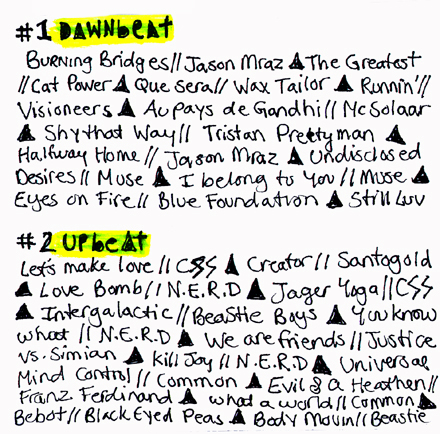 #1 DAWNbEAt
BURNiNg BRidges // JASon MRAZ ▲ The GREAtest
// CAt Power ▲ Que sera // Wax Tailor ▲ Runnin' //
Visioneers ▲ Au Pays de Gandhi // Mc Solaar
▲ Shy that Way // Tristan Prettyman ▲
Halfway Home // Jason Mraz ▲ Undisclosed
Desires // Muse ▲ I belong to You // Muse ▲
Eyes on Fire // Blue Foundation ▲ Still Luv
#2 UPbeAt
Let's make love // CSS ▲ Creator // Santogold
▲ Love Bomb // N.E.R.D ▲ Jager Yoga // CSS
▲ Intergalactic // Beastie Boys ▲ You know
what // N.E.R.D ▲ We are friends // Justice
vs. Simian ▲ Kill Joy // N.E.R.D ▲ Universal
Mind Control // Common ▲ Evil & a Heathen //
Franz Ferdinand ▲ what a world // Common ▲
Bebot // Black Eyed Peas ▲ Body Movin // Beastie